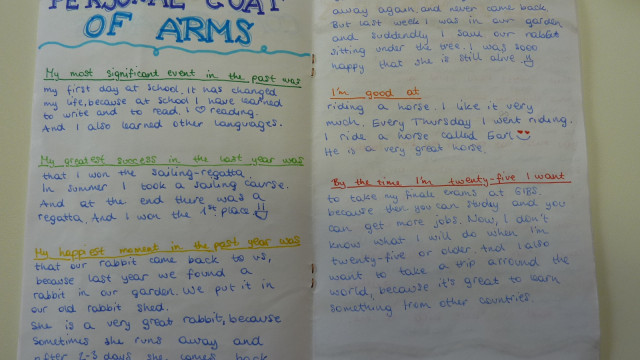 PERSONAL COAT
OF ARMS
My most significant event in the past was
my first day at school. It has changed
my life, because at school I have learned
to write and to read. I ♡ reading.
And I also learned other languages.
My greatest success in the last year was
that I won the sailing-regatta.
In summer I took a sailing course.
And at the end there was a
regatta. And I won the 1st place
My happiest moment in the past year was
that our rabbit came back to us,
because last year we found a
rabbit in our garden. We put it in
our old rabbit shed.
She is a very great rabbit, because
sometimes she runs away and
after 2-3 days she comes back
away again and never came back
But last week I was in our garden
and suddenly I saw our rabbit
sitting under the tree. I was sooo
happy that she is still alive
I'm good at
riding a horse. I like it very
much. Every Thursday I went riding.
I ride a horse called Earl
He is a very great horse.
By the time I'm twenty-five I want
to take my finale exams at GIBS,
because then you can study and you
can get more jobs. Now, I don't
know what I will do when I'm
twenty-five or older. And I also
want to take a trip arround the
world, because it's great to learn
something from other countries.